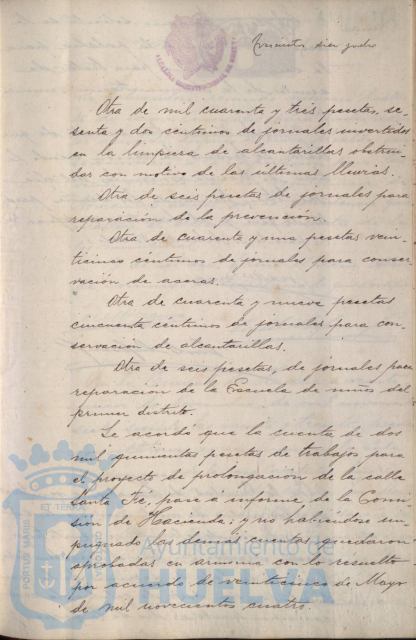 Otra de mil cuarenta y tres pesetas, se-
senta y dos centimos de jornales invertidos
en la limpieza de alcantarillas obstrui-
das con motivo de las últimas lluvias.
Otra de seis pesetas de jornales para
reparación de la prevención.
Otra de cuarenta y una pesetas vein-
ticinco céntimos de jornales para conser-
vación de aceras.
Otra de cuarenta y nueve pesetas
cincuenta céntimos de jornales para con-
servación de alcantarillas.
Otra de seis pesetas, de jornales para
reparación de la Escuela de niños del
primer distrito.
Se acordó que la cuenta de dos
mil quinientas pesetas de trabajos para
el proyecto de prolongación de la calle
Santa Fé, pase á informe de la Comi-
sion de Hacienda; y no habiendose im-
pugnado las demás cuentas quedaron
aprobadas en armonia con lo resuelto
por acuerdo de veinticinco de Mayo
de mil novecientos cuatro.
Ayuntamiento de
HUELVA